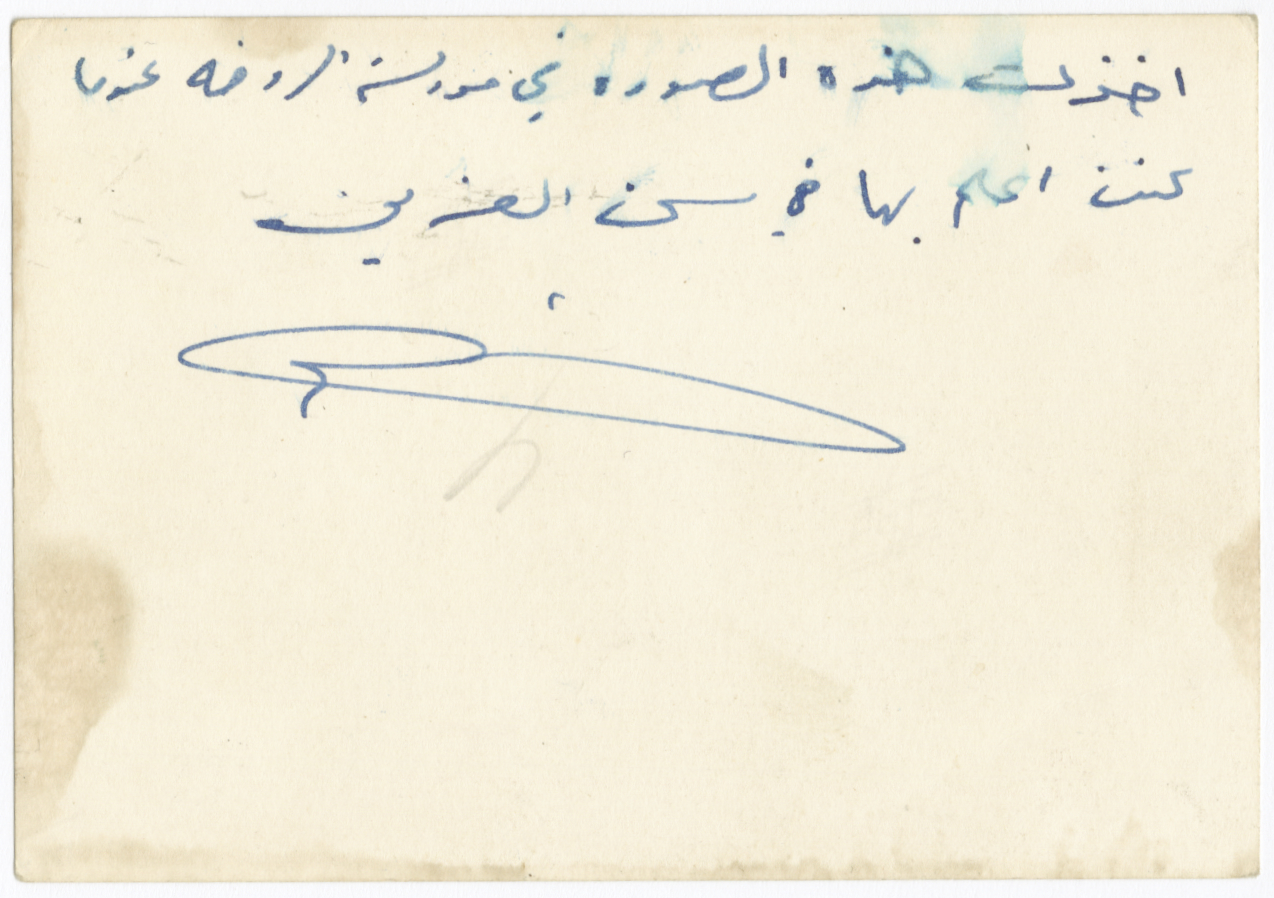 اخذت هذه الصوره في مدرسة الروضه عندما
كنت اعلم بها في سن العشرين